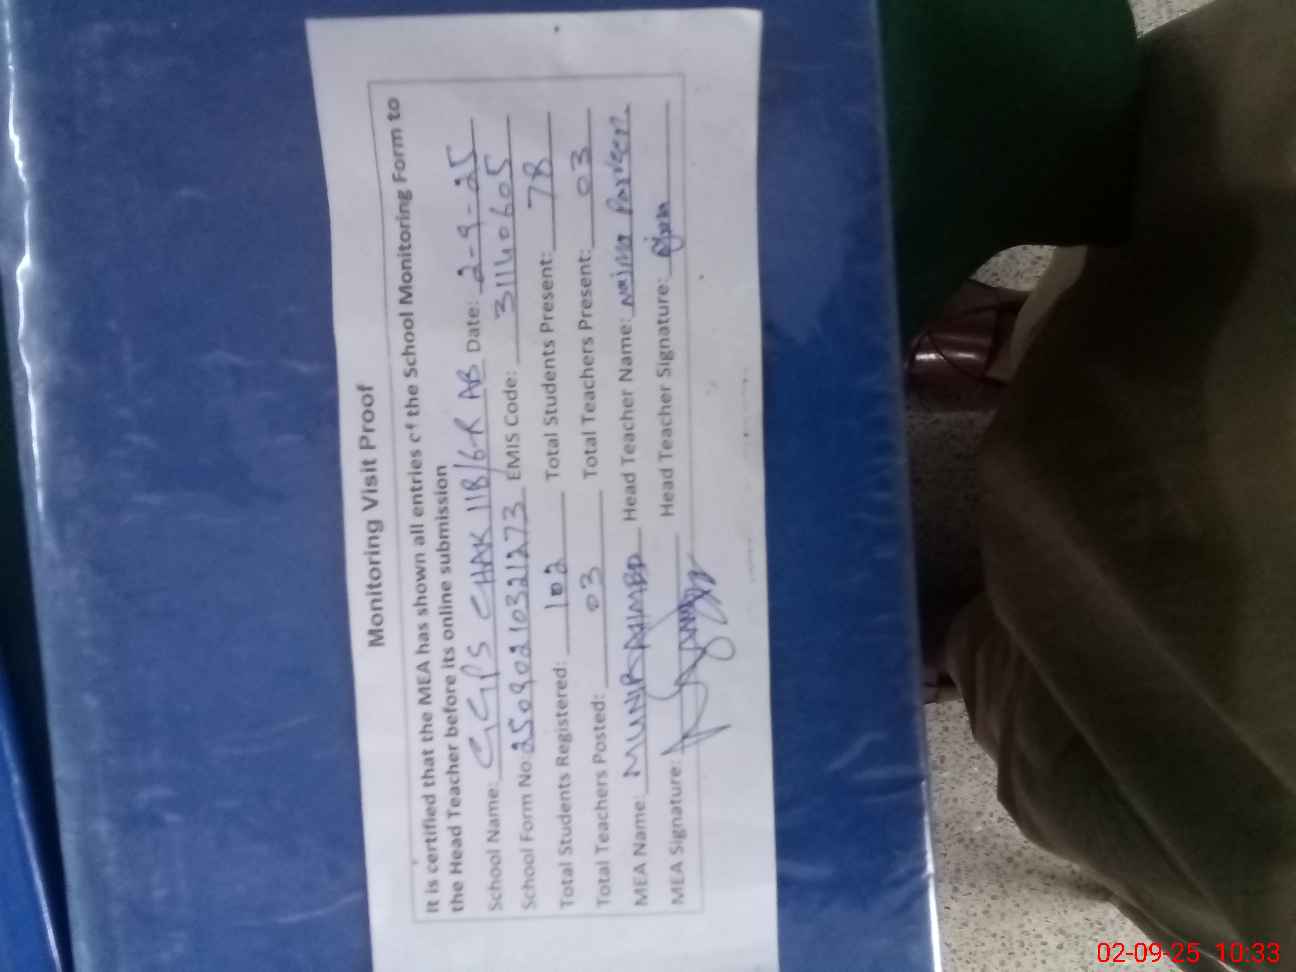 Monitoring Visit Proof
It is certified that the MEA has shown all entries of the School Monitoring Form to
the Head Teacher before its online submission
School Name: GGPS CHAK 11B/6-R AB Date: 2-9-25
School Form No 25090210321273 EMIS Code: 31140605
Total Students Registered: 102 Total Students Present: 78
Total Teachers Posted: 03 Total Teachers Present: 03
MEA Name: MUNIR AHMED Head Teacher Name: Najma Parveen
MEA Signature: Head Teacher Signature:
02-09-25 10:33